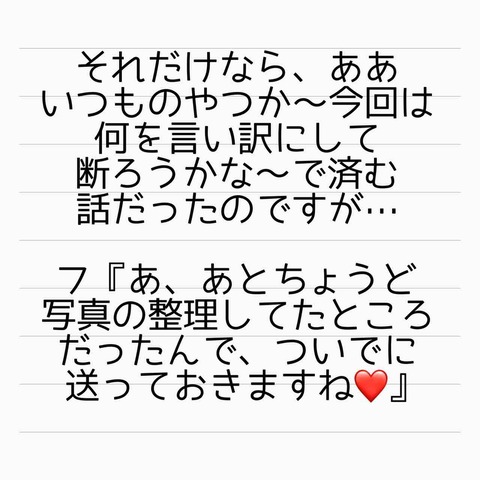 それだけなら、ああ
いつものやつか〜今回は
何を言い訳にして
断ろうかな〜で済む
話だったのですが…
フ『あ、あとちょうど
写真の整理してたところ
だったんで、ついでに
送っておきますね❤️』